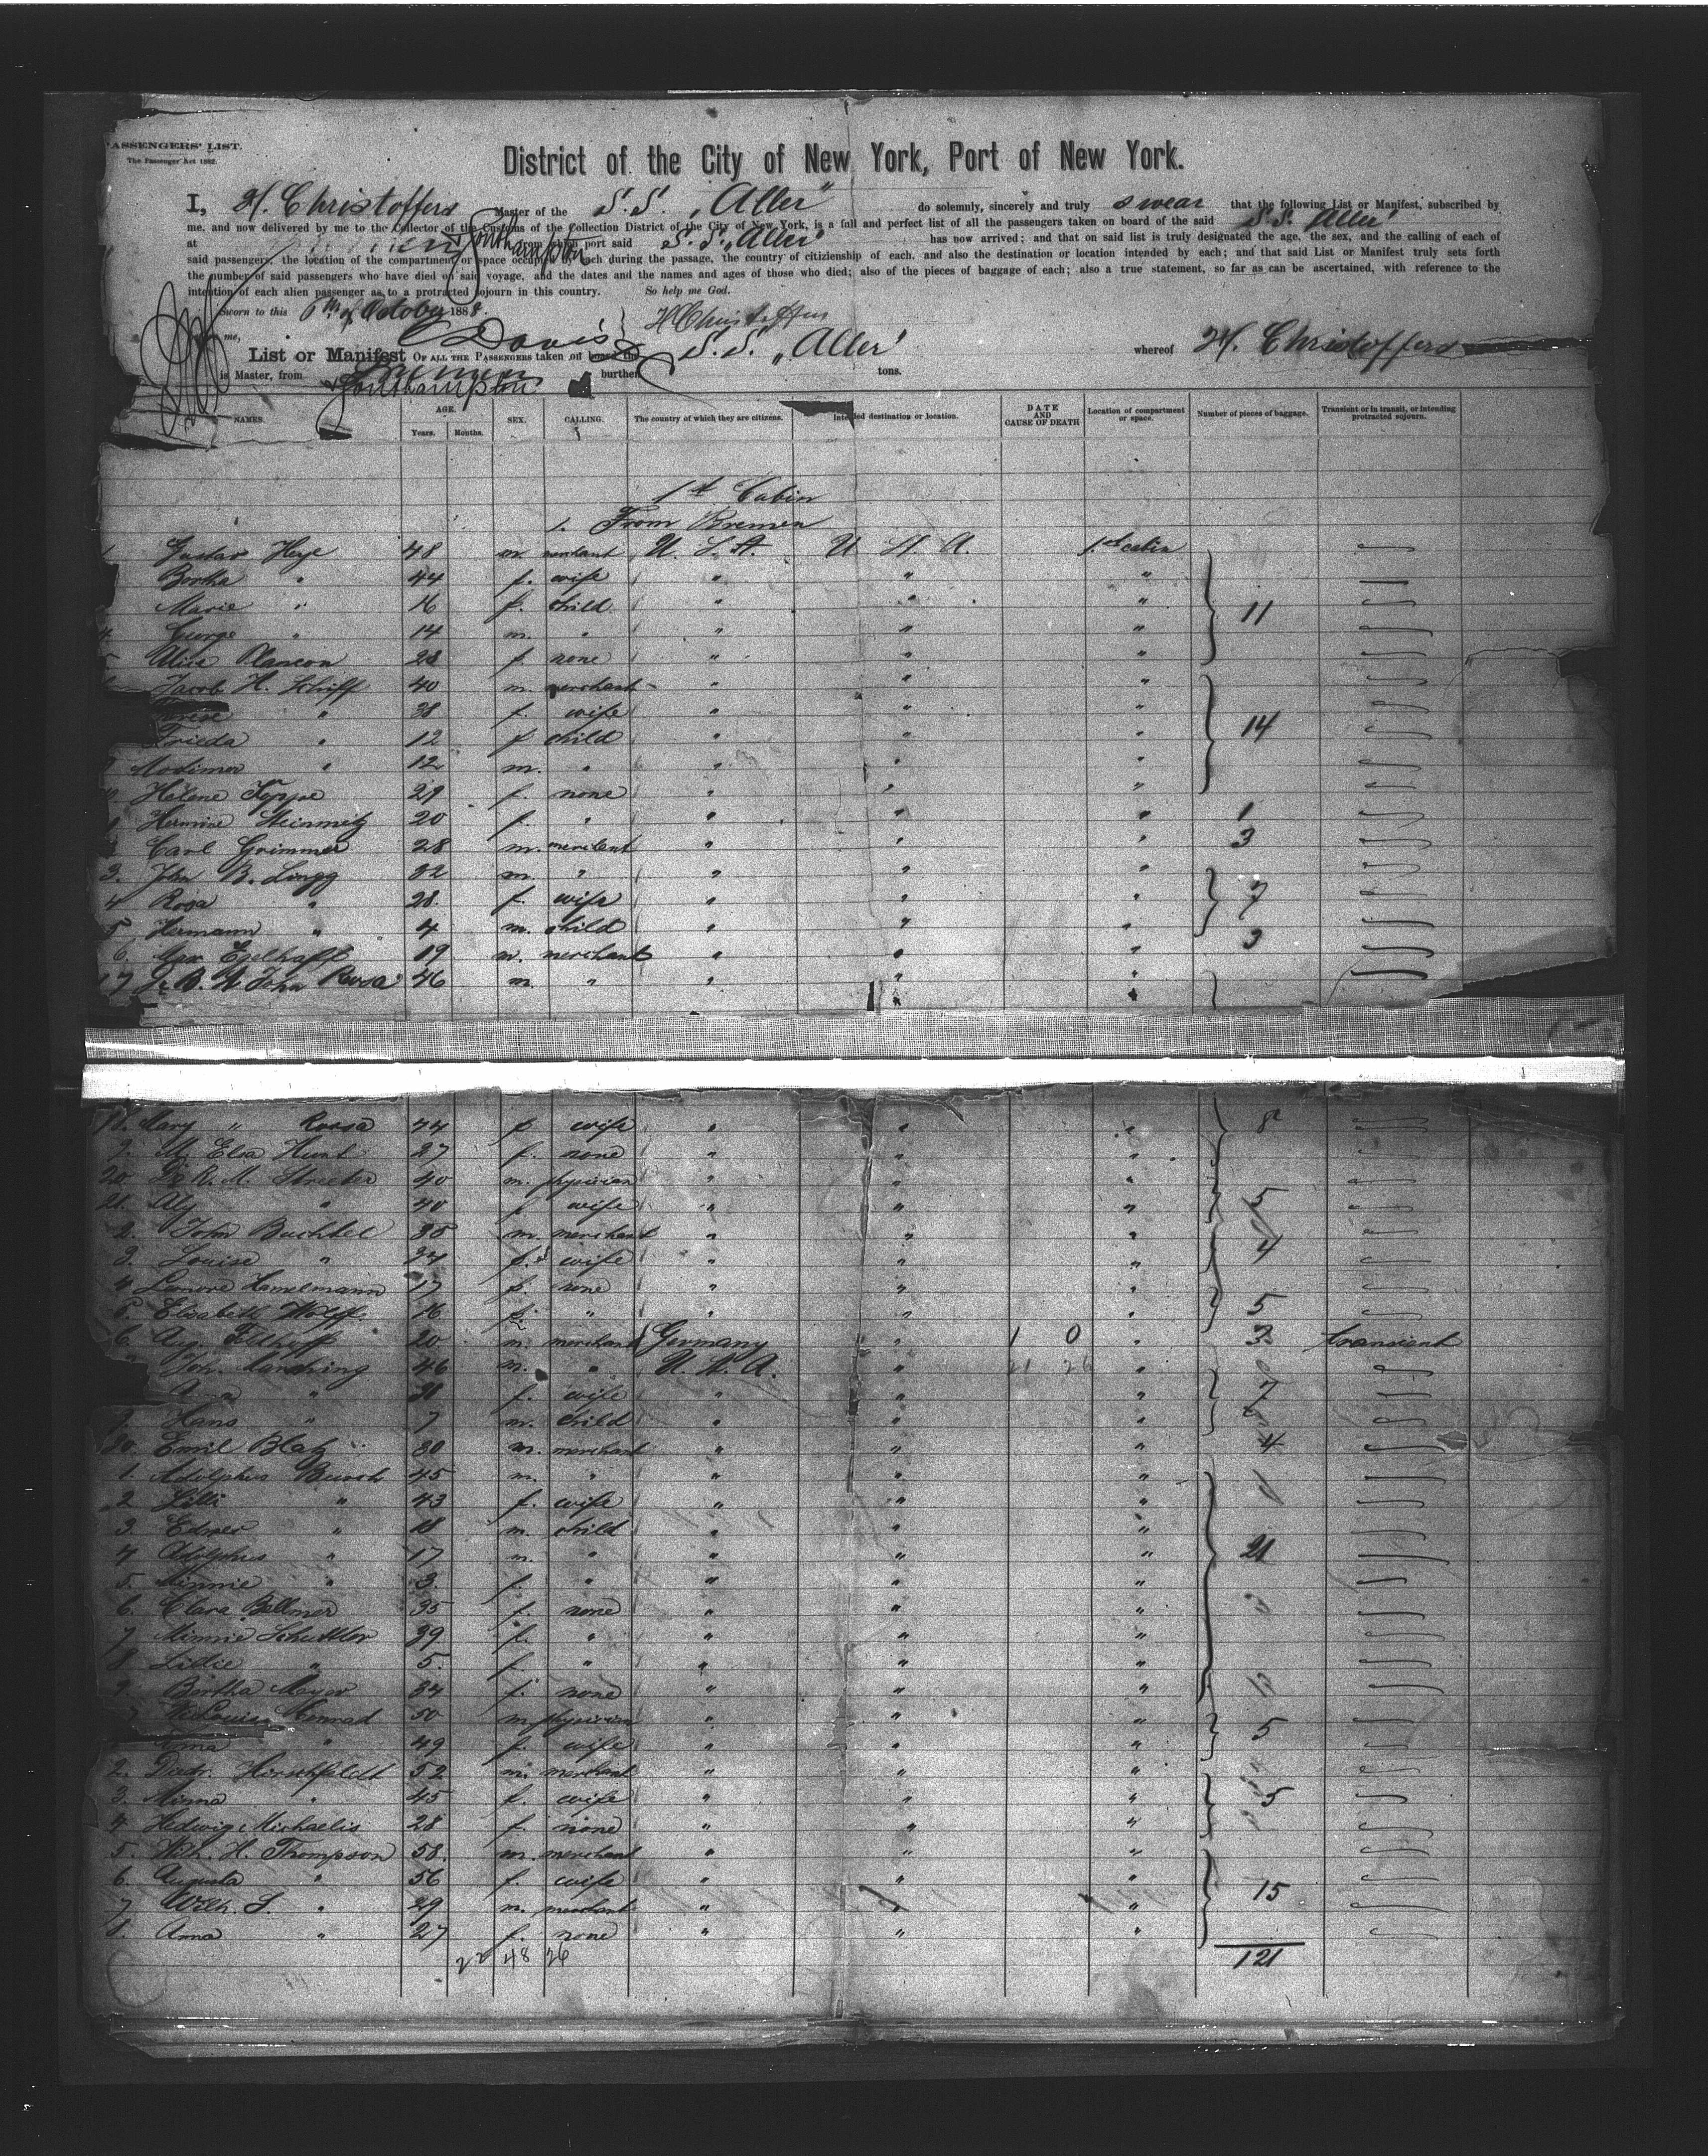 PASSENGERS' LIST.
The Passenger Act 1882.
District of the City of New York, Port of New York.
I, H. Christoffers Master of the S.S. „Aller" do solemnly, sincerely and truly swear that the following List or Manifest, subscribed by
me, and now delivered by me to the Collector of the Customs of the Collection District of the City of New York, is a full and perfect list of all the passengers taken on board of the said S.S. „Aller"
at Bremen & Southampton from which port said S.S. „Aller" has now arrived; and that on said list is truly designated the age, the sex, and the calling of each of
said passengers, the location of the compartment or space occupied by each during the passage, the country of citizienship of each, and also the destination or location intended by each; and that said List or Manifest truly sets forth
the number of said passengers who have died on said voyage, and the dates and the names and ages of those who died; also of the pieces of baggage of each; also a true statement, so far as can be ascertained, with reference to the
intention of each alien passenger as to a protracted sojourn in this country. So help me God.
Sworn to this 6th of October 1888.
me, Davis H Christoffers
List or Manifest OF ALL THE PASSENGERS taken on board the S.S. „Aller" whereof H. Christoffers
is Master, from Bremen & Southampton burthen tons.
NAMES. AGE. Years. Months. SEX. CALLING. The country of which they are citizens. Intended destination or location. DATE AND CAUSE OF DEATH Location of compartment or space. Number of pieces of baggage. Transient or in transit, or intending protracted sojourn.
1st Cabin
1. From Bremen
1 Gustav Heye 48 m. merchant U. S. A. U. S. A. 1st cabin
Bertha " 44 f. wife " " "
Marie " 16 f. child " " " 11
4. George " 14 m. " " " "
5 Alice Plancon 28 f. none " " "
Jacob H. Schiff 40 m. merchant " " "
" 38 f. wife " " "
Frieda " 12 f. child " " " 14
Modimer " 12 m. " " " "
Helene Teppe 29 f. none " " "
Hermine Steinmetz 20 f. " " " " 1
Carl Grimmer 28 m. merchant " " " 3
3. John B. Lingg 32 m. " " " "
4 Rosa " 28. f. wife " " " 7
5 Hermann " 4 m. child " " "
6. Max Egelhaff 19 m. merchant " " " 3
17 John Roosa 46 m. " " " "
18. Mary " Roosa 44 f. wife " " " 8
9. M. Elsa Hunt 27 f. none " " "
20 Dr. R. M. Streeter 40 m. physician " " "
21. Aly " 40 f. wife " " " 5
2. John Buchtel 35 m. merchant " " "
3. Louise " f. wife " " " 4
4 Lenore Hanelmann 17 f. none " " "
5. Elisabeth Wolff 16. f. " " " " 5
6. Aug. Ellhoff 20 m. merchant Germany " 1 0 " 3 transient
Joh. Marching 46 m. " U. S. A. " 21 26 "
Anna " 38 f. wife " " " 7
9. Hans " 7 m. child " " "
30. Emil Blatz 30 m. merchant " " " 4
1. Adolphus Busch 45 m. " " " "
2 Lilli " 43 f. wife " " "
3. " 18 m. child " " "
4 Adolphus " 17 m. " " " " 21
5. Minnie " 3. f. " " " "
6. Clara Bellmer 35 f. none " " "
7 Minnie Schuttler 39 f. " " " "
8 Lillie " 5. f. " " " "
9. Bertha Mayer 34 f. none " " "
Louis Conrad 50 m. physician " " "
" 49 f. wife " " " 5
2. Hirschfeldt 52 m. merchant " " "
3. Minna " 45 f. wife " " " 5
4 Hedwig Michaelis 28 f. none " " "
5. Wilh. H. Thompson 58. m. merchant " " "
6. Augusta " 56 f. wife " " "
7 Wilh. S. " 29 m. merchant " " " 15
8. Anna " 27 f. none " " "
22 48 26 121